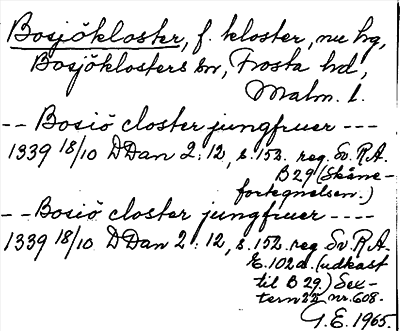 Bosjökloster, f. kloster, nu hg,
Bosjöklosters sn, Frosta hd,
Malm. l.
-- Bosiö closter jungfruer ---
1339 18/10 DDan 2:12, s. 152. reg. Sv. R.A.
B 29 (Skåne-
fortegnelsen.)
-- Bosiö closter jungfruer ----
1339 18/10 DDan 2:12, s. 152. reg. Sv. R.A.
E. 102a. (udkast
til B 29.) Sex-
tern 22 nr. 608.
G.E. 1965.